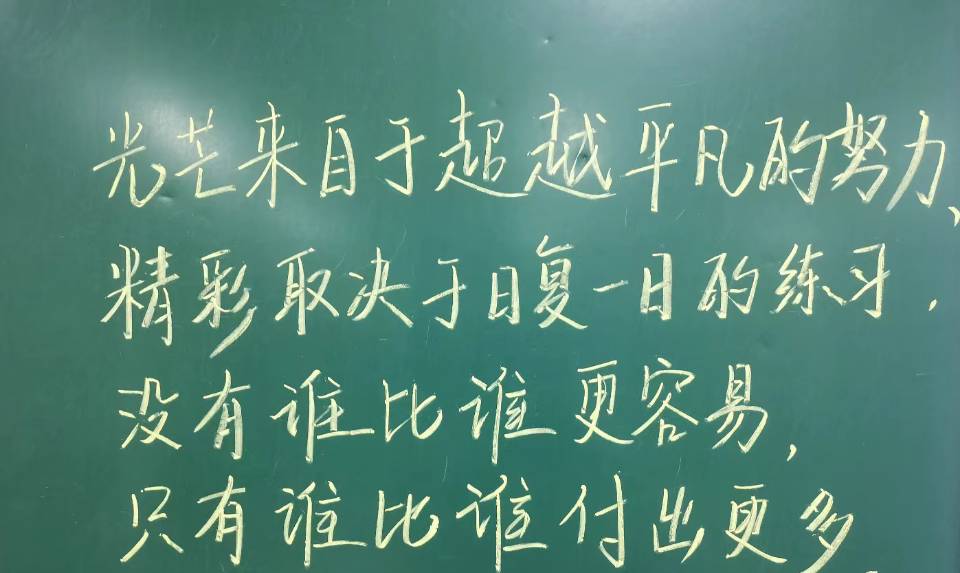 光芒来自于超越平凡的努力、
精彩取决于日复一日的练习.
没有谁比谁更容易,
只有谁比谁付出更多.